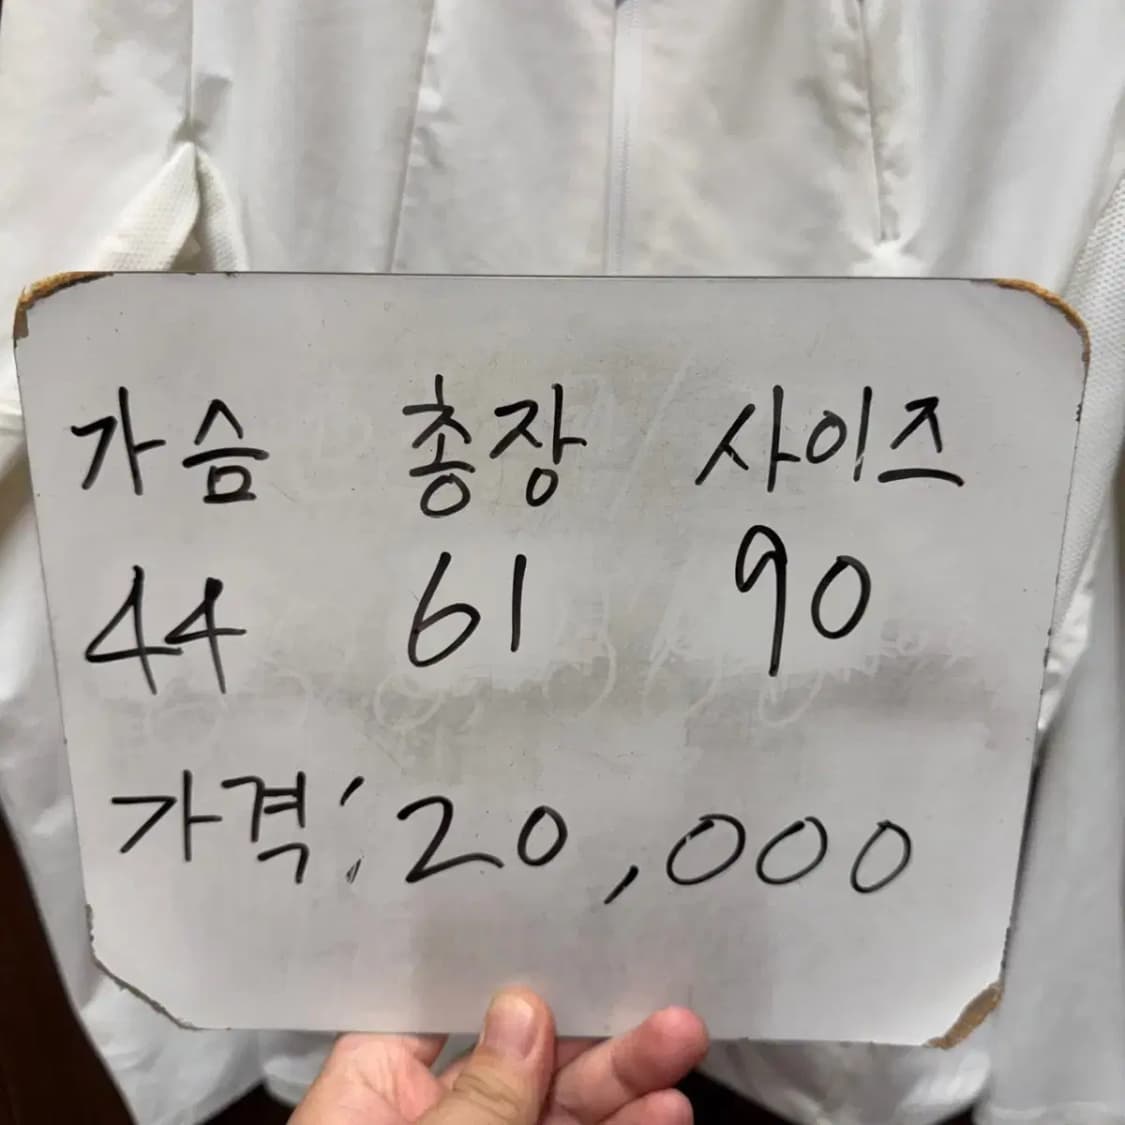 가슴 총장 사이즈
44 61 90
가격: 20,000